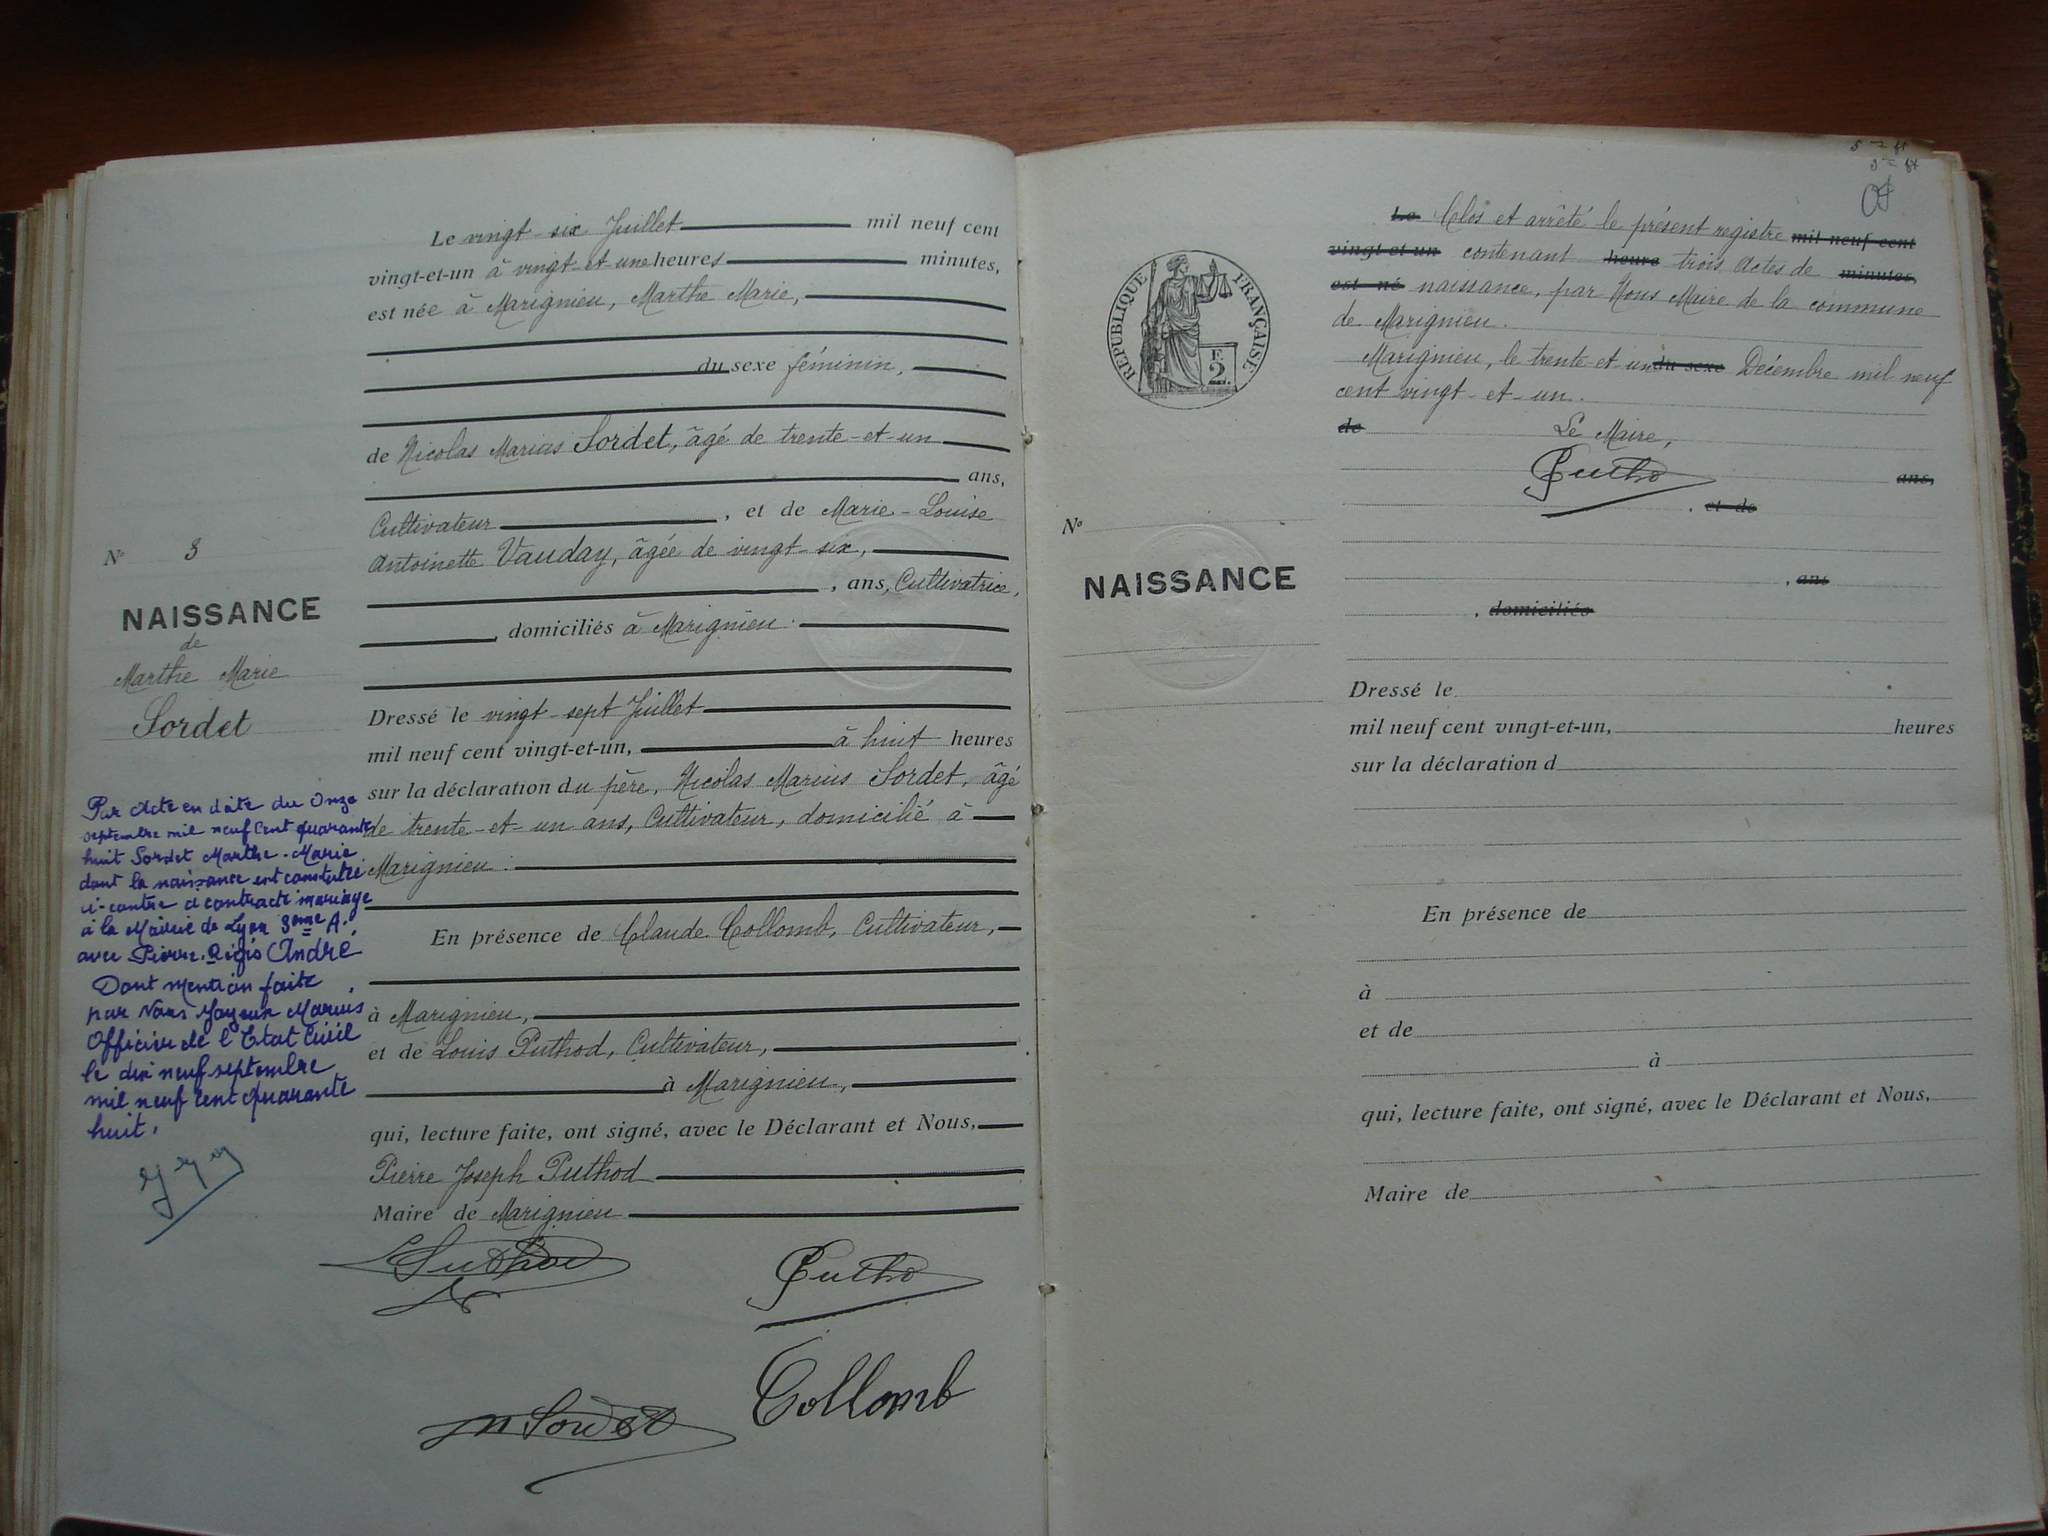 Le vingt-six Juillet mil neuf cent
vingt-et-un à vingt-et-une heures minutes,
est née à Marignieu, Marthe Marie,
du sexe féminin,
de Nicolas Marius Sordet, âgé de trente-et-un
ans,
Cultivateur, et de Marie-Louise
Antoinette Vauday, âgée de vingt-six,
, ans, Cultivatrice,
, domiciliés à Marignieu.
Dressé le vingt-sept Juillet
mil neuf cent vingt-et-un, à huit heures
sur la déclaration du père, Nicolas Marius Sordet, âgé
de trente-et-un ans, Cultivateur, domicilié à
Marignieu.
En présence de Claude Collomb, Cultivateur,
à Marignieu,
et de Louis Puthod, Cultivateur,
à Marignieu,
qui, lecture faite, ont signé, avec le Déclarant et Nous,
Pierre Joseph Puthod
Maire de Marignieu
Puthod
Collomb
Sordet
N° 3
NAISSANCE
de
Marthe Marie
Sordet
Par Acte en date du Onze
septembre mil neuf Cent quarante
huit Sordet Marthe-Marie
dont la naissance est constatée
ci-contre a contracté mariage
à la Mairie de Lyon 3ème A.
avec Pierre-Régis André
Dont mention faite
par Nous Marius
Officier de l'Etat Civil
le dix neuf septembre
mil neuf cent quarante
huit.
RÉPUBLIQUE FRANÇAISE
F.
2.
N°
NAISSANCE
Le Clos et arrêté le présent registre mil neuf cent
vingt-et-un contenant heure trois Actes de minutes,
est né naissance, par Nous Maire de la commune
de Marignieu.
Marignieu, le trente-et-un du sexe Décembre mil neuf
cent vingt-et-un.
de Le Maire,
Putho ans,
, et de
, ans
, domiciliés
Dressé le
mil neuf cent vingt-et-un, heures
sur la déclaration d
En présence de
à
et de
à
qui, lecture faite, ont signé, avec le Déclarant et Nous,
Maire de